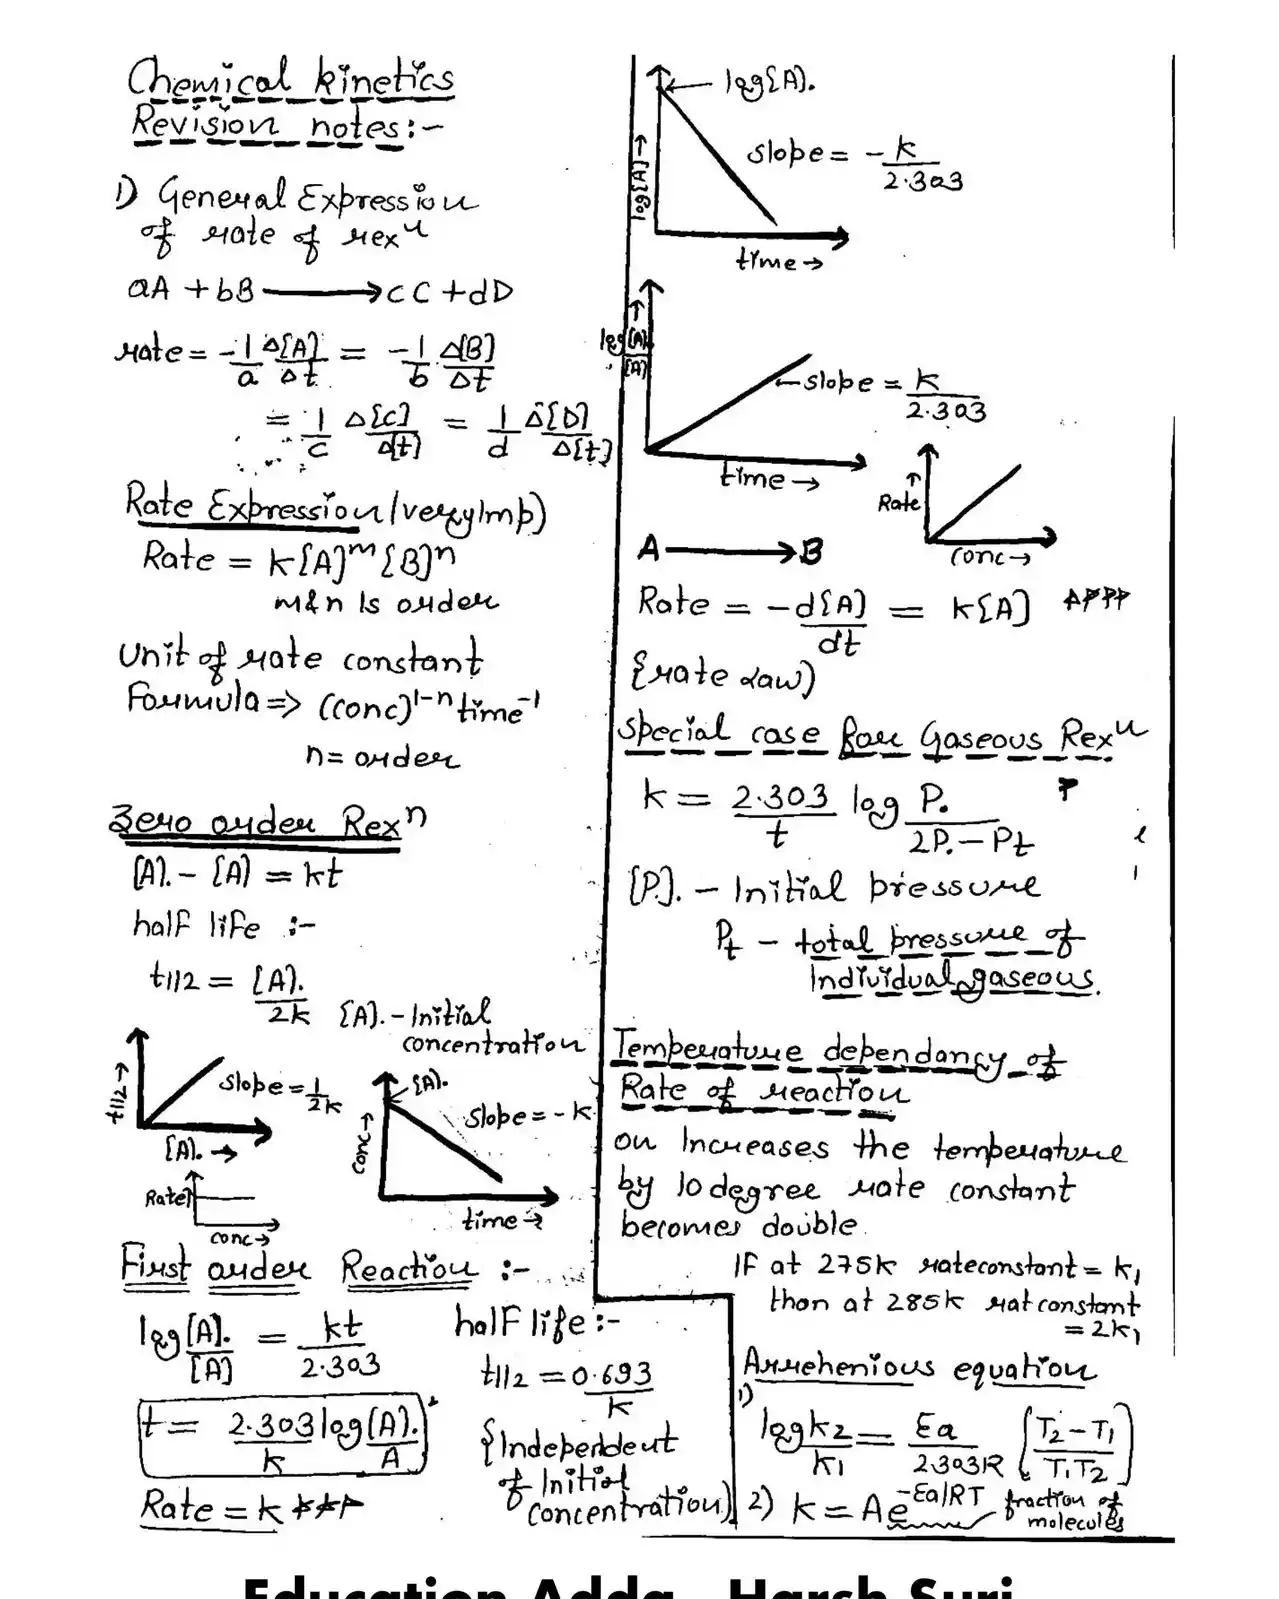 Chemical kinetics
Revision notes:-
1) General Expression
of rate of rexn
aA + bB ⟶ cC + dD
rate = -1/a Δ[A]/Δt = -1/b Δ[B]/Δt
= 1/c Δ[C]/Δ[t] = 1/d Δ[D]/Δ[t]
Rate Expression (very Imp)
Rate = k[A]^m [B]^n
m & n Is order
Unit of rate constant
Formula => (conc)^1-n time^-1
n = order
Zero order Rex^n
[A]. - [A] = kt
half life :-
t1/2 = [A]./2k
[A]. - Initial
concentration
t1/2 →
slope = 1/2k
[A]. →
[A].
conc →
slope = - k
time →
Rate↑
conc →
First order Reaction :-
log [A]./[A] = kt/2.303
t = 2.303/k log [A]./A
Rate = k
half life :-
t1/2 = 0.693/k
{Independent
of Initial
concentration)
log[A].
log[A] →
slope = -k/2.303
time →
log [A]./[A] →
slope = k/2.303
time →
Rate ↑
conc →
A ⟶ B
Rate = -d[A]/dt = k[A]
{rate Law)
special case for Gaseous Rexn
k = 2.303/t log P./2P. - Pt
[P]. - Initial pressure
Pt - total pressure of
Individual gaseous.
Temperature dependancy of
Rate of reaction
on Increases the temperature
by 10 degree rate constant
becomes double.
IF at 275k rate constant = k1
than at 285k rat constant
= 2k1
Arrehenious equation
1)
log k2/k1 = Ea/2.303R [T2 - T1/T1T2]
2) k = Ae^-Ea/RT fraction of
molecules
Education Adda Harsh Suri